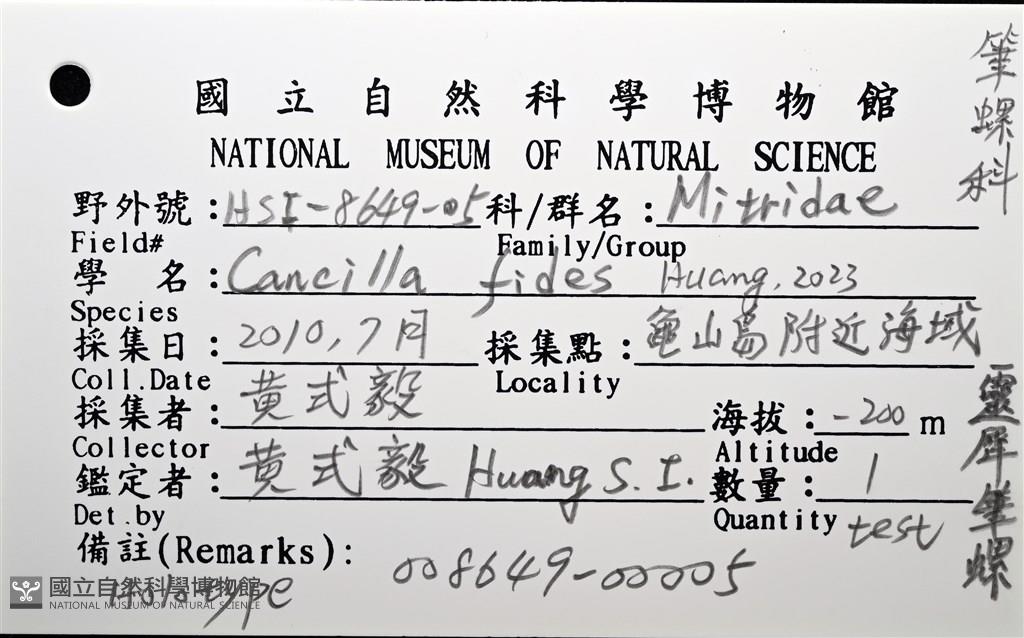 國立自然科學博物館
NATIONAL MUSEUM OF NATURAL SCIENCE
野外號：HSI-8649-05 科/群名：Mitridae
Field# Family/Group
學 名：Cancilla fides Huang, 2023
Species
採集日：2010, 7月 採集點：龜山島附近海域
Coll.Date Locality
採集者：黃式毅
海拔：-200 m
Collector Altitude
鑑定者：黃式毅 Huang S. I. 數量：1
Det.by Quantity test
備註(Remarks):
008649-00005
Holotype
筆螺科
靈犀筆螺
國立自然科學博物館
NATIONAL MUSEUM OF NATURAL SCIENCE